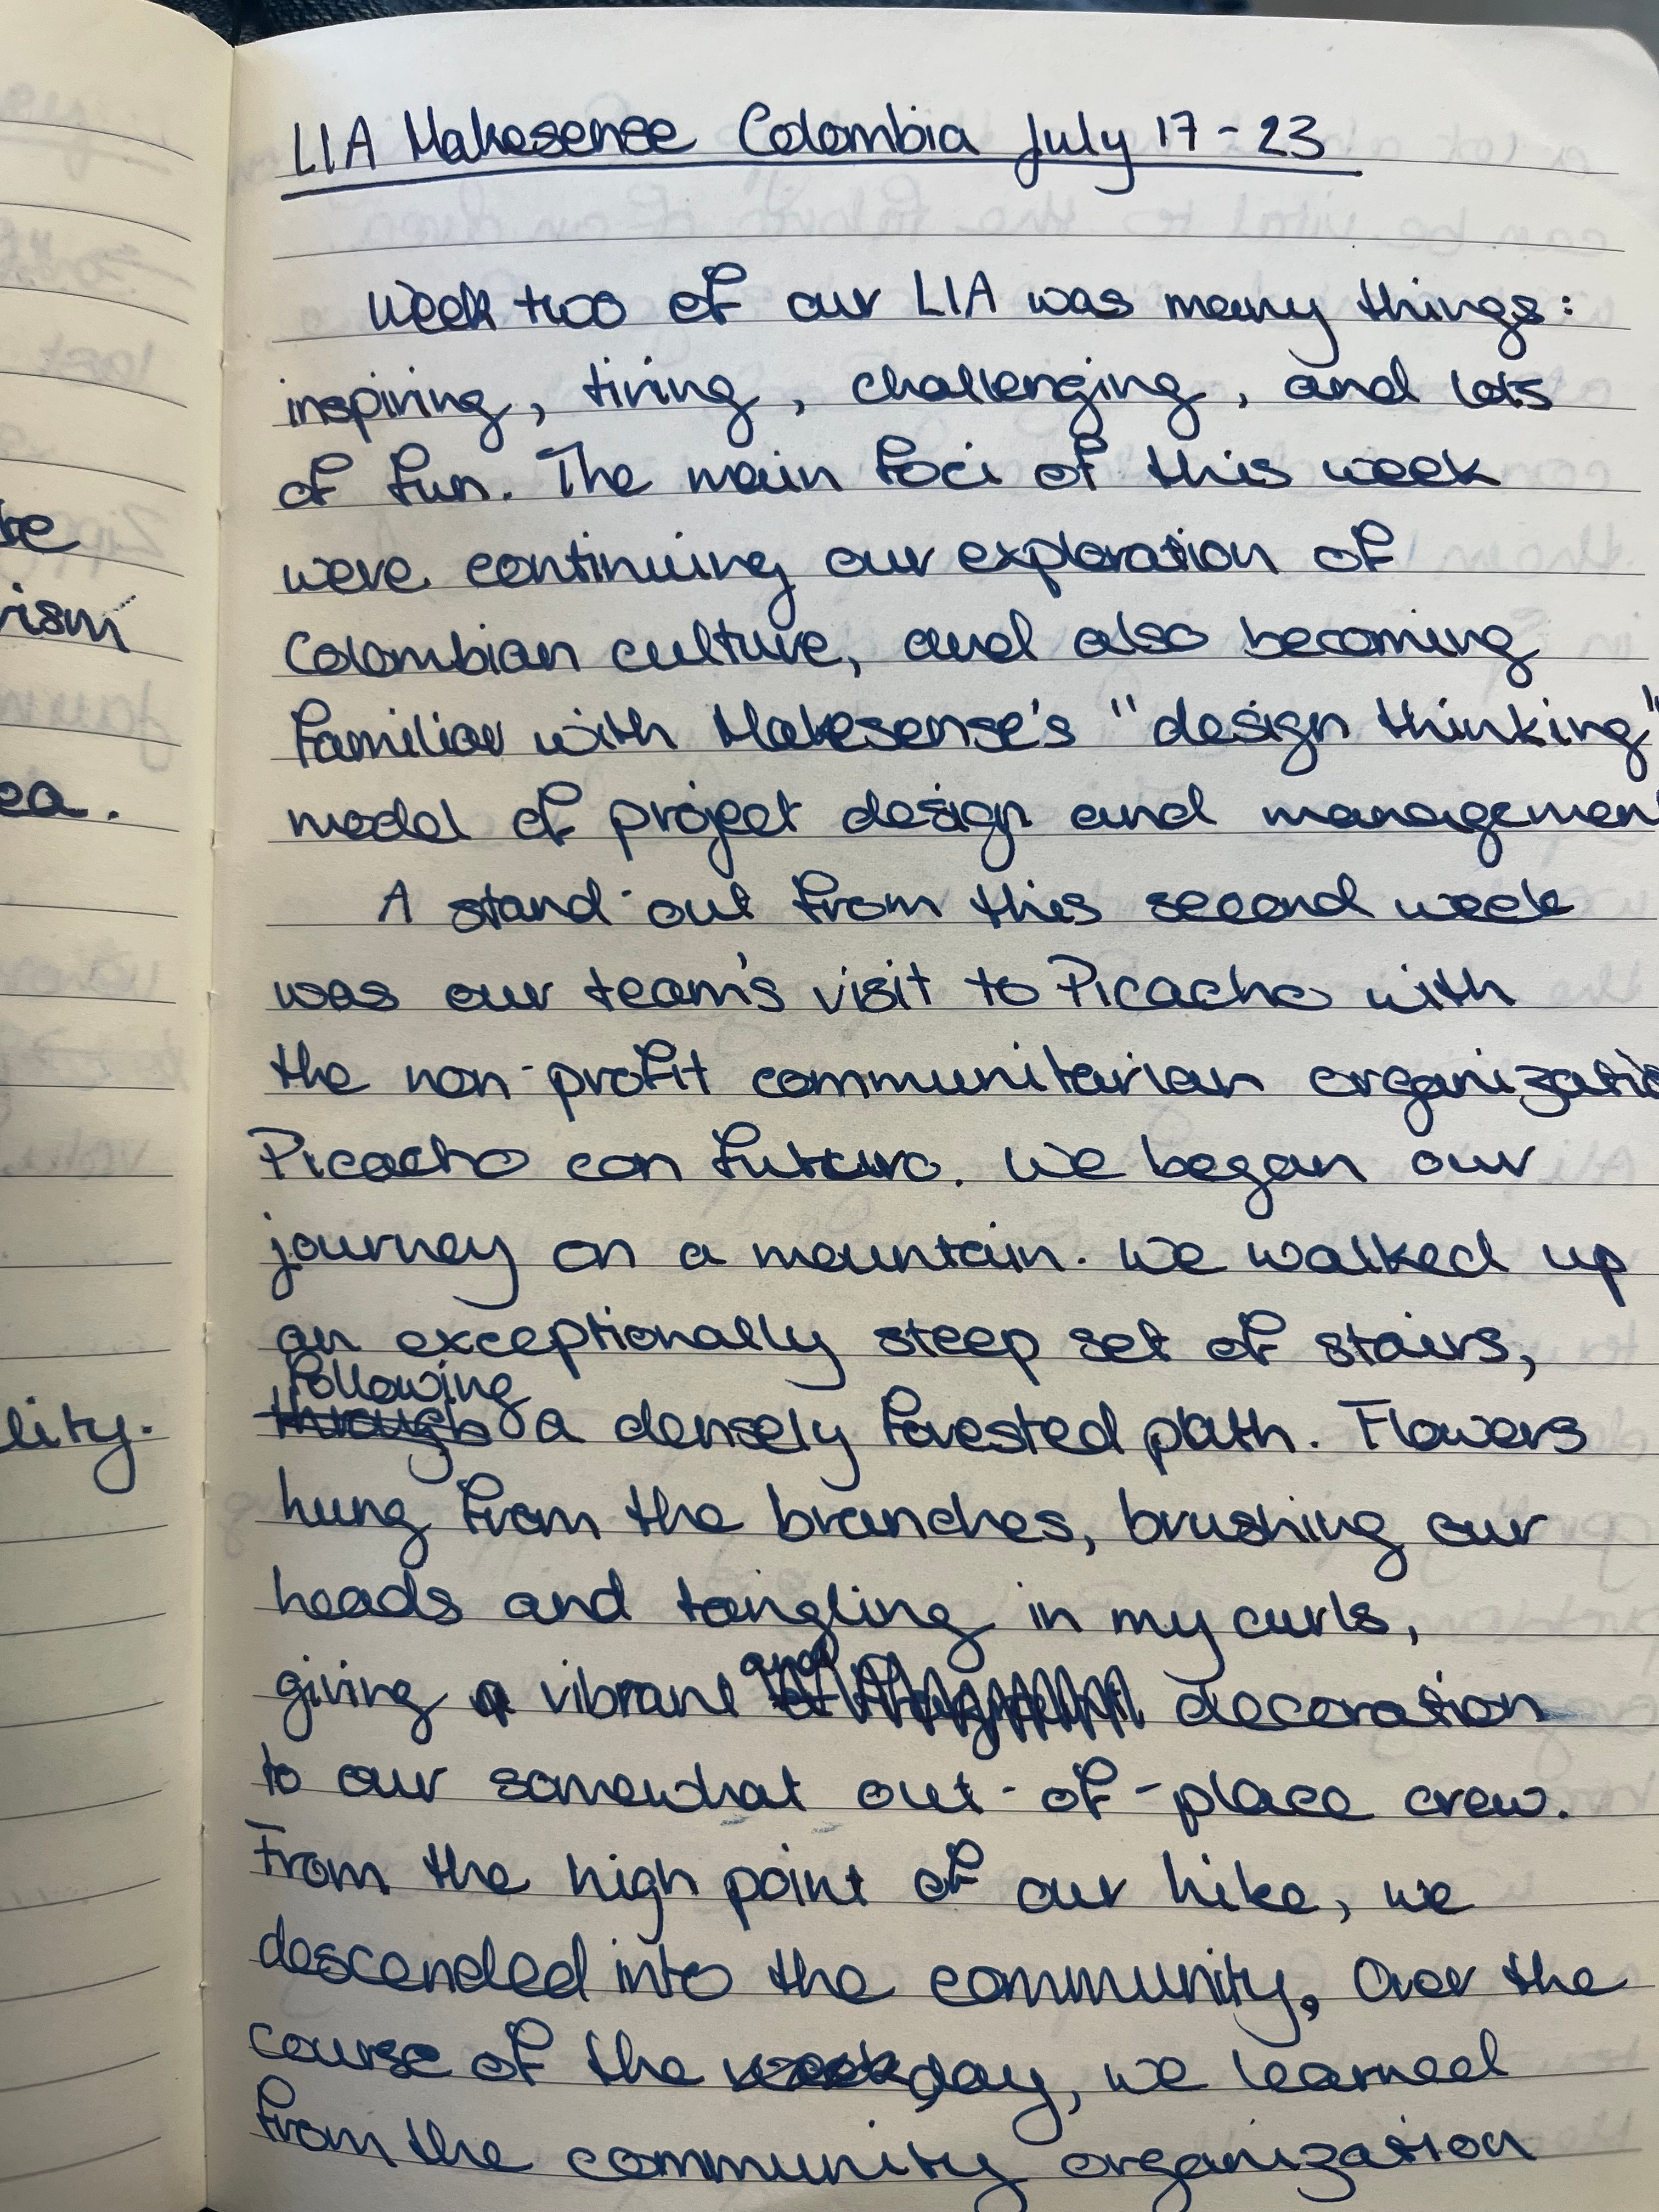 LIA Makesense Colombia July 17 - 23
Week two of our LIA was many things:
inspiring, tiring, challenging, and lots
of fun. The main foci of this week
were continuing our exploration of
Colombian culture, and also becoming
familiar with Makesense's "design thinking"
model of project design and managemen
A stand-out from this second week
was our team's visit to Picacho with
the non-profit communitarian organizatio
Picacho con Futuro. We began our
journey on a mountain. We walked up
an exceptionally steep set of stairs,
following
through a densely forested path. Flowers
hung from the branches, brushing our
heads and tangling in my curls,
and
giving a vibrant decoration
to our somewhat out-of-place crew.
From the high point of our hike, we
descended into the community. Over the
course of the week day, we learned
from the community organization
ke
rism
ea.
lity.